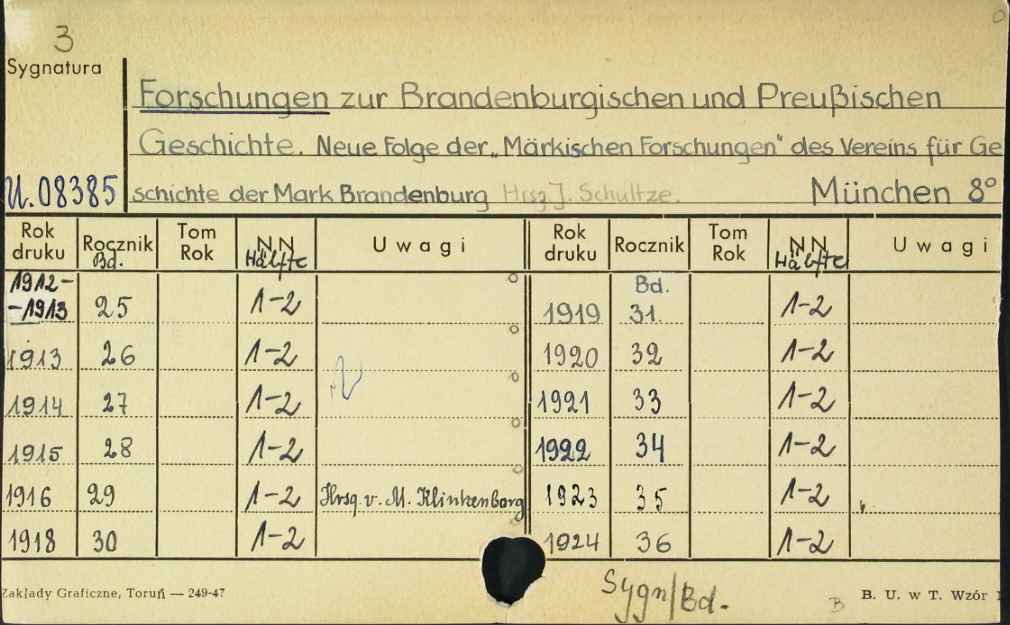 3
Sygnatura
Forschungen zur Brandenburgischen und Preußischen
Geschichte. Neue Folge der „Märkischen Forschungen" des Vereins für Ge
U.08385 schichte der Mark Brandenburg Hrsg J. Schultze. München 8°
Rok druku Rocznik Bd. Tom Rok NN Hälfte Uwagi Rok druku Rocznik Tom Rok NN Hälfte Uwagi
1912--1913 25 1-2 1919 Bd. 31. 1-2
1913 26 1-2 1920 32 1-2
1914 27 1-2 1921 33 1-2
1915 28 1-2 1922 34 1-2
1916 29 1-2 Hrsg. v. M. Klinkenborg 1923 35 1-2
1918 30 1-2 1924 36 1-2
Zakłady Graficzne, Toruń — 249-47 Sygn/Bd. B B. U. w T. Wzór